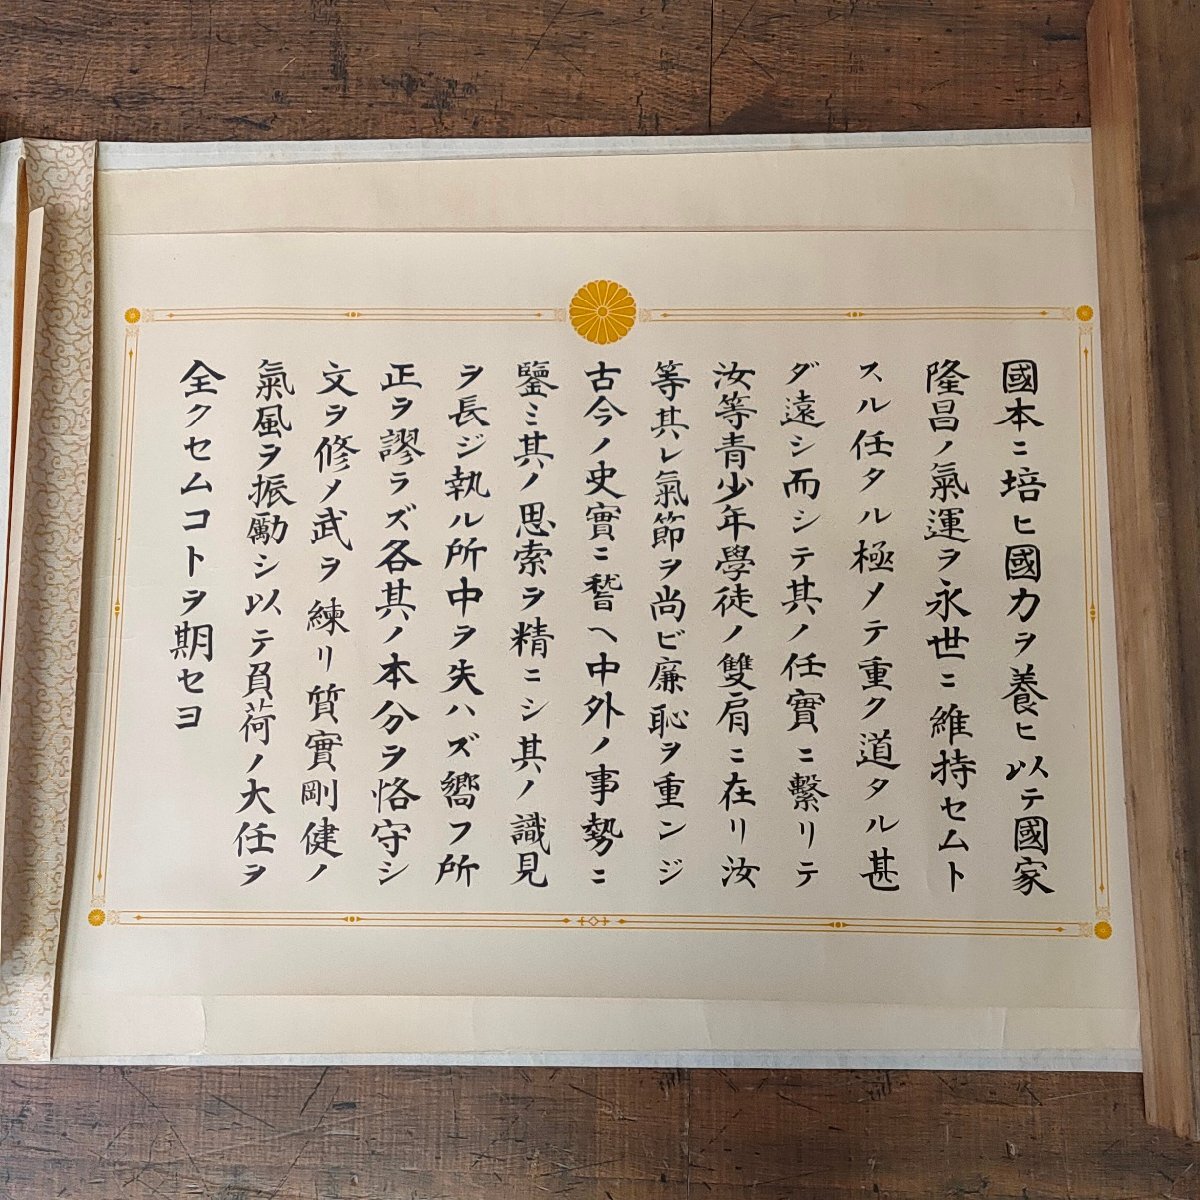 國本ニ培ヒ國力ヲ養ヒ以テ國家
隆昌ノ氣運ヲ永世ニ維持セムト
スル任タル極メテ重ク道タル甚
ダ遠シ而シテ其ノ任實ニ繋リテ
汝等青少年學徒ノ雙肩ニ在リ汝
等其レ氣節ヲ尚ビ廉恥ヲ重ンジ
古今ノ史實ニ稽ヘ中外ノ事勢ニ
鑒ミ其ノ思索ヲ精ニシ其ノ識見
ヲ長ジ執ル所中ヲ失ハズ嚮フ所
正ヲ謬ラズ各其ノ本分ヲ恪守シ
文ヲ修メ武ヲ練リ質實剛健ノ
氣風ヲ振勵シ以テ負荷ノ大任ヲ
全クセムコトヲ期セヨ